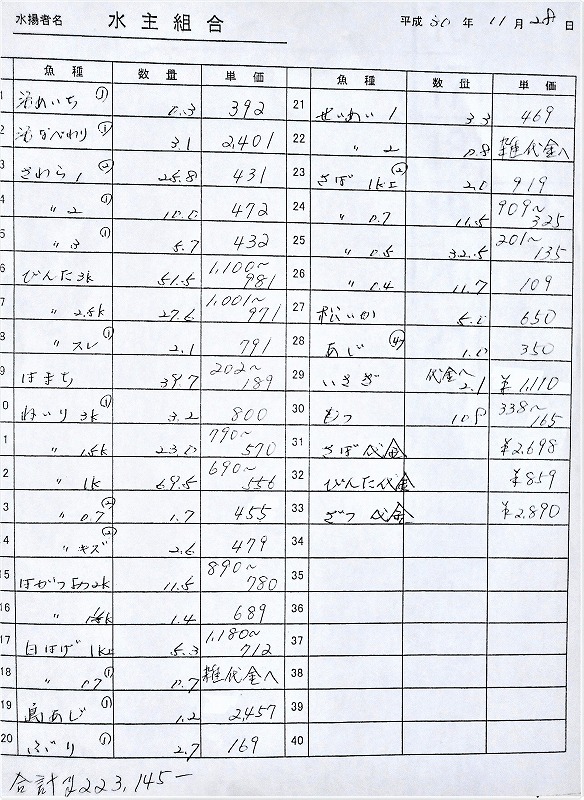 水揚者名 水主組合 平成 30 年 11 月 28 日
魚種 数量 単価
1 活めいち ① 0.3 392
2 活なべわり ① 3.1 2,401
3 さわら 1 ② 25.8 431
4 〃 2 ① 10.0 472
5 〃 3 ① 5.7 432
6 びんた 3k 51.5 1,100〜981
7 〃 2.5k 27.6 1,001〜971
8 〃 スレ ① 2.1 791
9 はまち 39.7 202〜189
10 ねいり 3k ① 3.2 800
11 〃 1.5k 23.0 790〜570
12 〃 1k 69.5 690〜556
13 〃 0.7 ② 1.7 455
14 〃 キズ ② 2.6 479
15 はがつお 2k 11.5 890〜780
16 〃 1.4 689
17 白はげ 1k 5.3 1,180〜712
18 〃 0.7 ① 0.7 雑代金へ
19 島あじ ① 1.2 2,457
20 ぶり ① 2.7 169
魚種 数量 単価
21 せいめい 1 3.3 469
22 〃 2 0.8 雑代金へ
23 さば 1k上 ② 2.0 919
24 〃 0.7 11.5 909〜325
25 〃 0.5 32.5 201〜135
26 〃 0.4 11.7 109
27 松いか 5.0 650
28 あじ ④ 1.0 350
29 いさぎ 代金へ 2.1 ¥1,110
30 もつ 10.8 338〜165
31 さば代金 ¥2,698
32 びんた代金 ¥859
33 ざつ代金 ¥2,890
34
35
36
37
38
39
40
合計 ¥223,145―